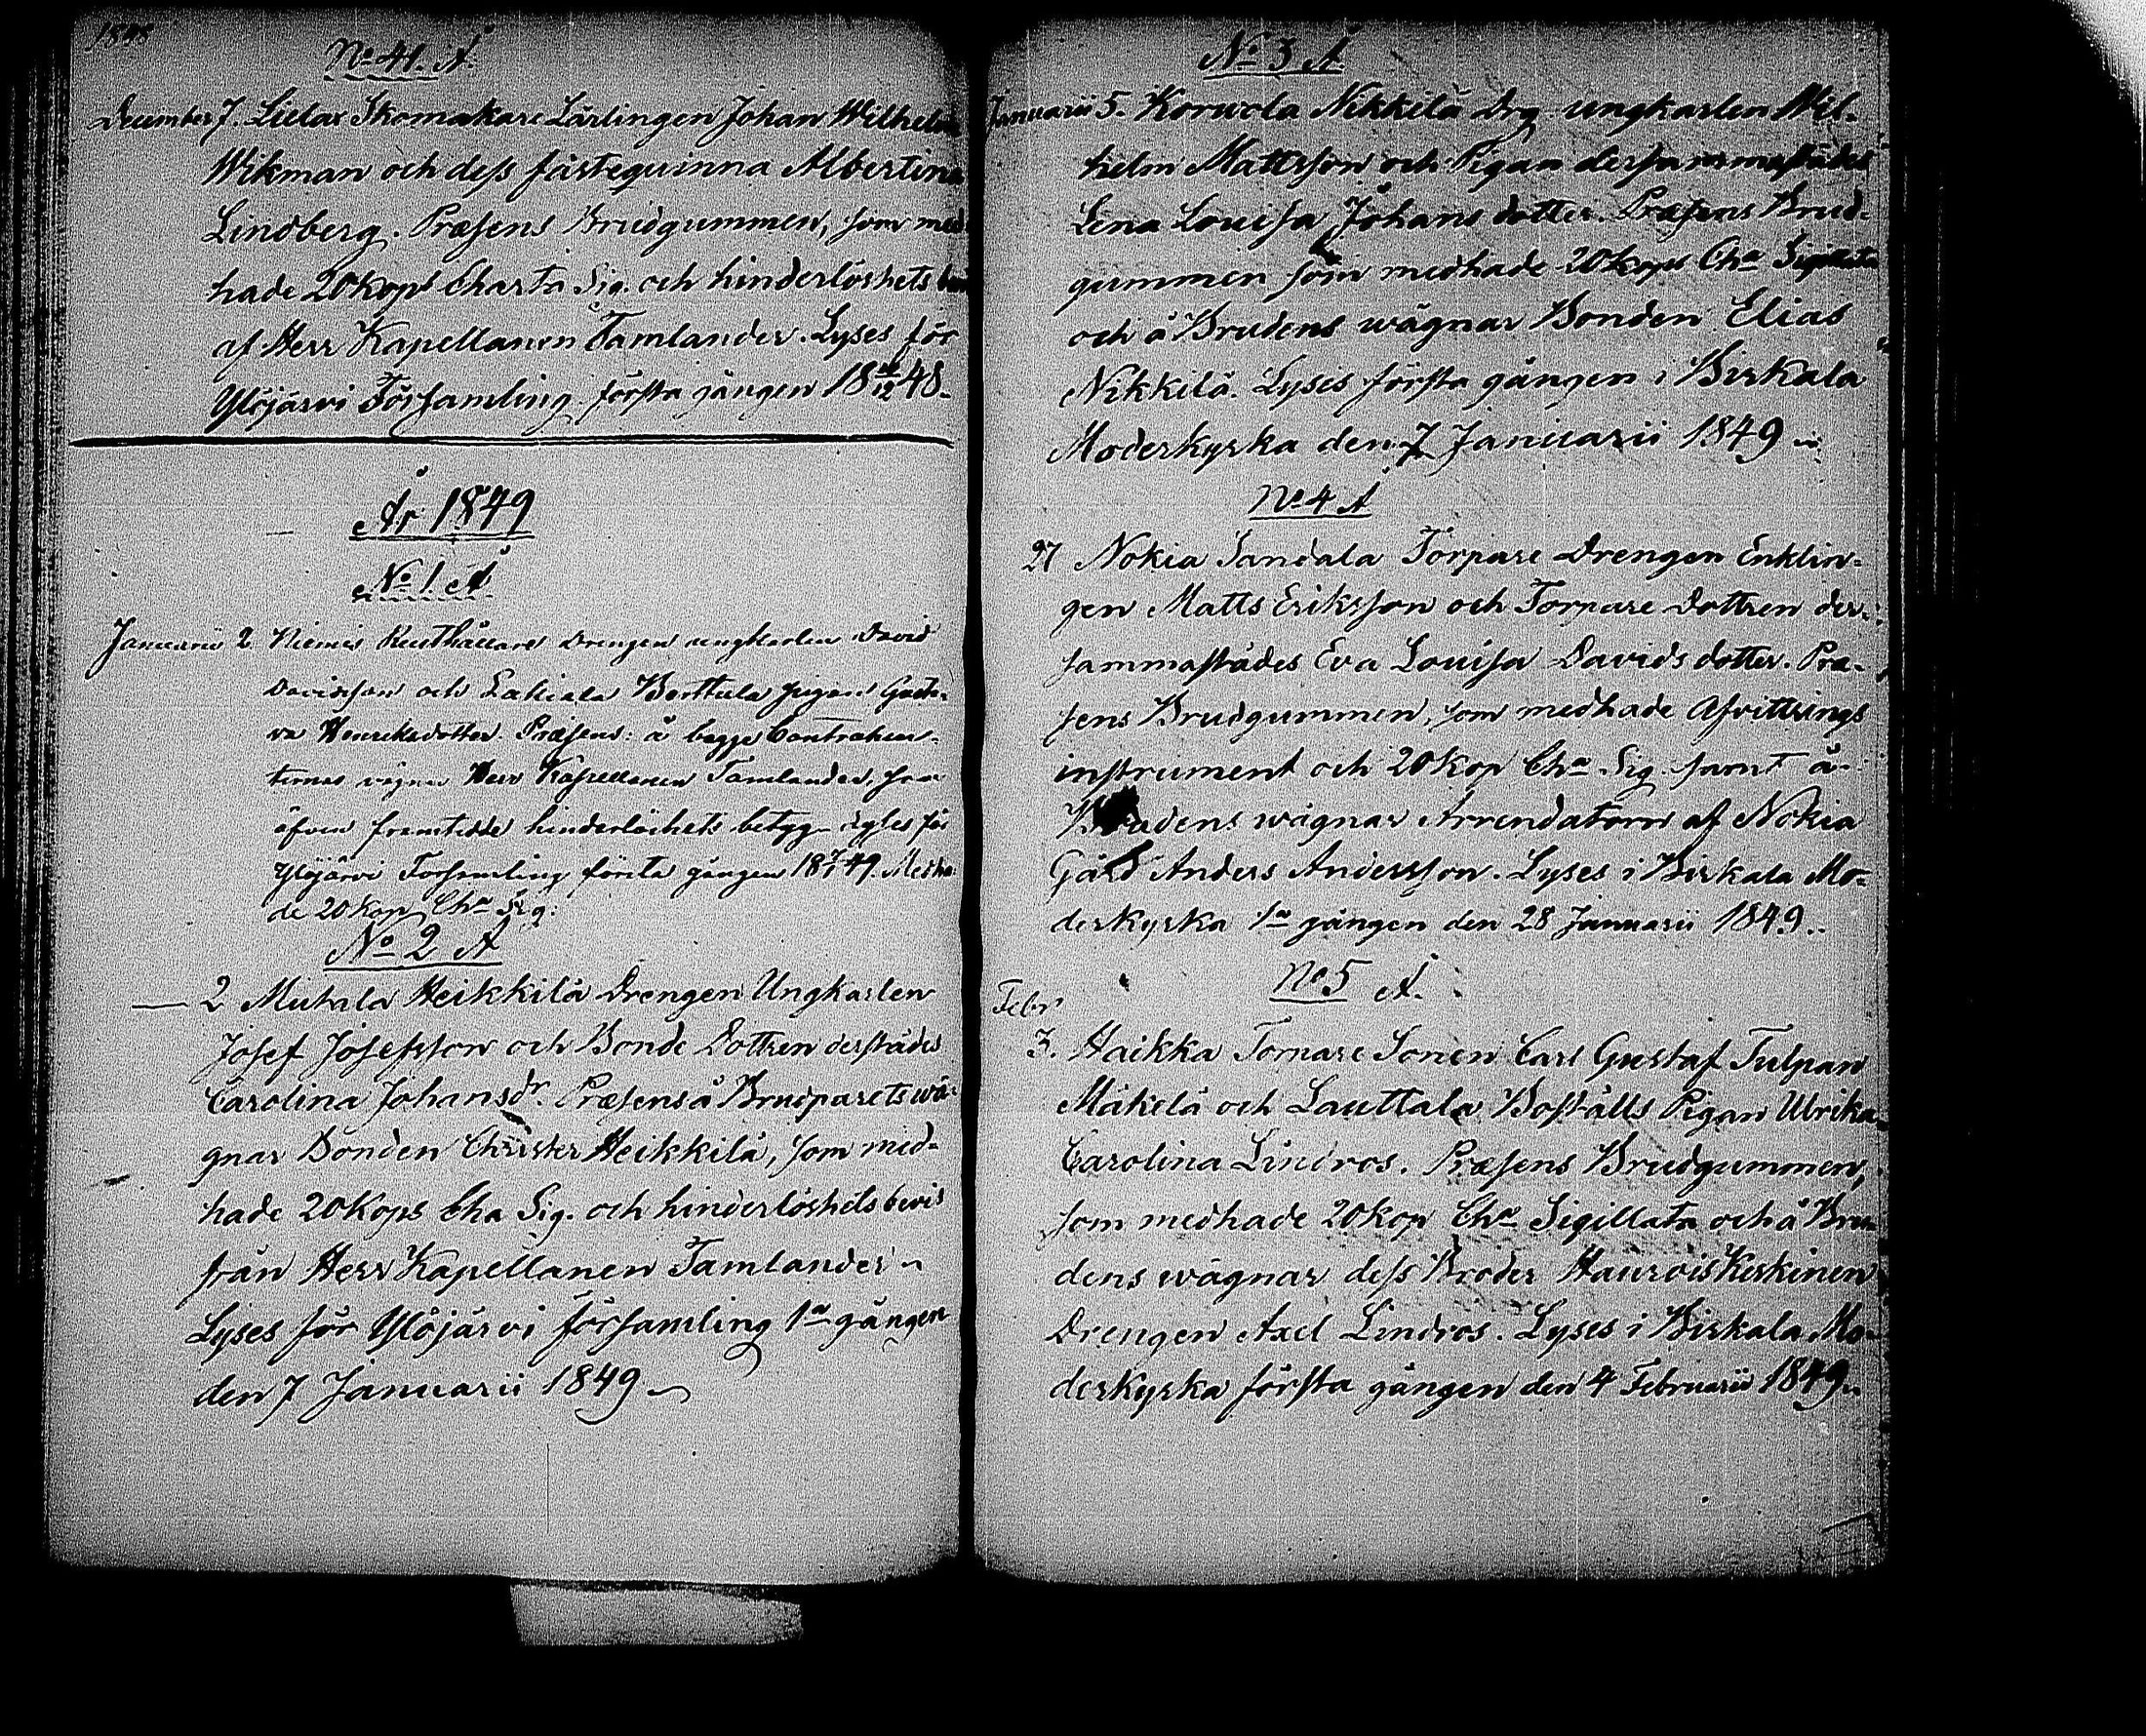 1848
No 41. A.
December 7. Lielax Skomakare Lärlingen Johan Wilhelm
Wikman och dess fästeqvinna Albertina
Lindberg. Præsens Brudgummen, som med
hade 20 kops Charta Sig. och hinderlöshets
af Herr Kapellanen Tamlander. Lyses för
Ylöjärvi Församling första gången 18 12 48.
År 1849
No 1 A
Januarii 2. Niemis Rusthållare Drengen ungkarlen David
Davidsson och Lakiala Berttula pigan Gusta-
va Henriksdotter. Præsens: å begge Contrahen-
ternas vägnar Herr Kapellanen Tamlander, som
äfven framtedde hinderlöshets betyg. Lyses för
Ylöjärvi Församling första gången 18 7/1 49. Medha-
de 20 kop Cha Sig:
No 2 A
— 2 Mutala Heikkilä Drengen Ungkarlen
Josef Josefsson och Bonde Dottren derstädes
Carolina Johansdr. Præsens å Brudparets wä-
gnar Bonden Christer Heikkilä, som med-
hade 20 Kops Cha Sig. och hinderlöshets bevis
från Herr Kapellanen Tamlander
Lyses för Ylöjärvi församling 1a gången
den 7 Januarii 1849
No 3 A
Januarii 5. Korwola Nikkilä Drg ungkarlen Wil-
helm Mattsson och Pigan dersammastädes
Lena Lovisa Johans dotter. Præsens Brud-
gummen som medhade 20 kops Cha Sigillata
och å Brudens wägnar Bonden Elias
Nikkilä. Lyses första gången i Birkala
Moderkyrka den 7 Januarii 1849
No 4 A
27 Nokia Sandala Torpare Drengen Enklin-
gen Matts Eriksson och Torpare Dottren der-
sammastädes Eva Lovisa Davids dotter. Præ-
sens Brudgummen, som medhade Afvittrings
instrument och 20 kop Cha Sig. samt å
Brudens wägnar Arrendatorn af Nokia
Gård Anders Andersson. Lyses i Birkala Mo-
derkyrka 1a gången den 28 Januarii 1849.
No 5 A.
Febr
3. Haikka Torpare Sonen Carl Gustaf Tulpan
Mäkelä och Lauttala Boställs Pigan Ulrika
Carolina Lindros. Præsens Brudgummen,
som medhade 20 kop Cha Sigillata och å Bru-
dens wägnar dess Broder Haurois Keskinen
Drengen Axel Lindros. Lyses i Birkala Mo-
derkyrka första gången den 4 Februarii 1849.